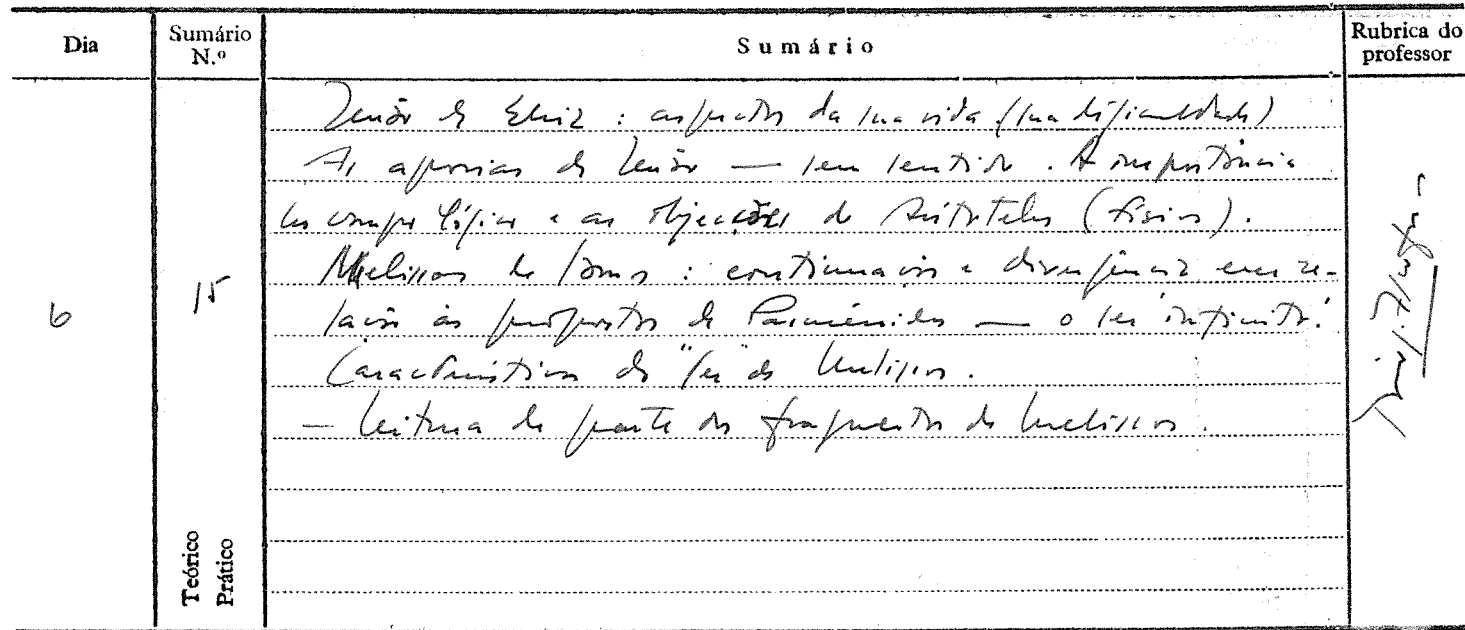 Dia
Sumário N.º
Sumário
Rubrica do professor
6
15
Teórico
Prático
Zenão de Eleia : aspectos da sua vida (sua dificuldade)
As aporias de Zenão — seu sentido. A importância
no campo lógico e as objecções de Aristóteles (física).
Melissos de Samos : continuação e divergência em re-
lação às propostas de Parménides — o ser infinito.
Características do "ser" de Melissos.
— Leitura de parte dos fragmentos de Melissos.